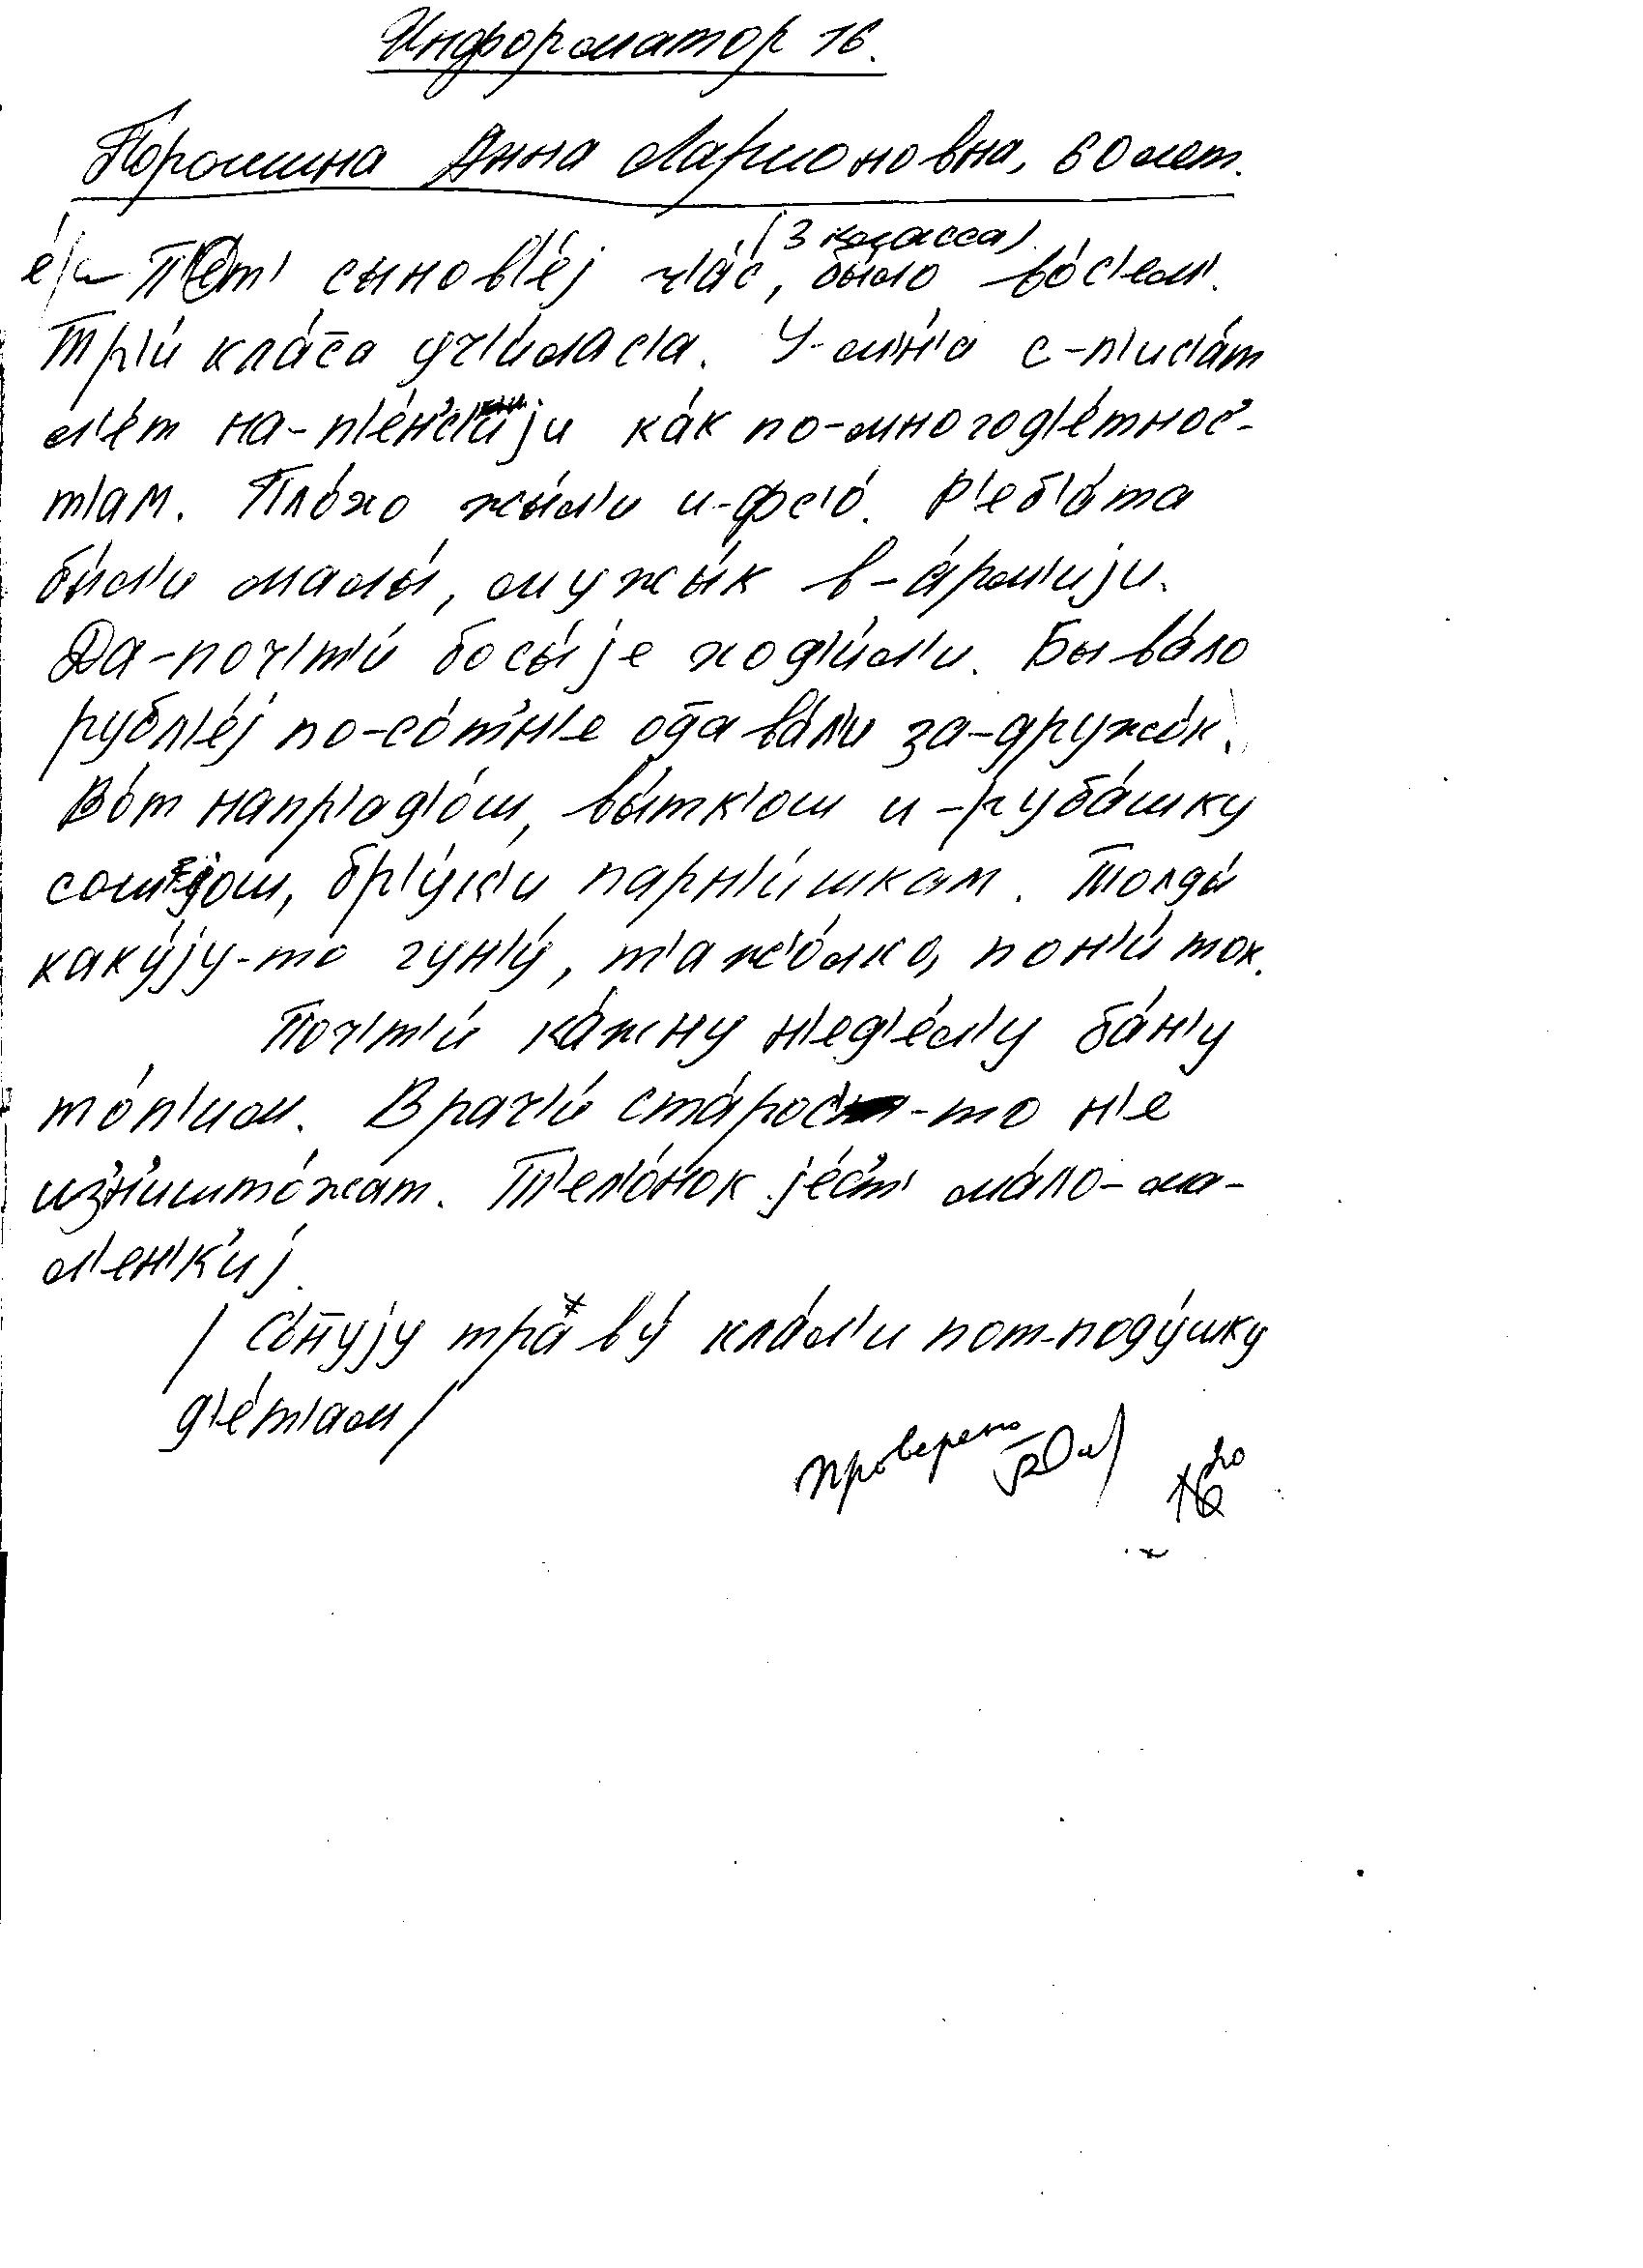 Информатор 16.
Порошина Анна Ларионовна, 60 лет.
(3 класса)
П'е́т' сынов'е́j ч'а́с, бы́ло во́с'ем'.
Тр'и́ кла́с̄а уч'и́лас'а. У-м'н'а́ с-п'ис'а́т
л'е́т на-п'е́н'с'иjи ка́к по-многод'е́тнос'-
т'ам. Пло́хо жы́л'и и-фс'о́. Р'еб'а́та
бы́л'и малы́, мужы́к в-а́рм'иjи.
Да-поч'т'и́ босы́jе ход'и́л'и. Быва́ло
рубл'е́j по-со́т'н'е од̄ава́л'и за-дружо́к.
Во́т напр'ад'о́ш, вы́тк'ош и-руба́шку
сош'jо́ш, бр'у́к'и парн'и́шкам. Толды́
каку́jу-то гун'у́, т'ажо́лко, пон'и́ток.
Поч'т'и́ ка́жну н'ед'е́л'у ба́н'у
то́п'им. Врач'и́ ста́рос'-то н'е
из'н'ишто́жат. Т'ел'о́нок jе́с'т' ма́ло-ма-
л'ен'к'иj.
/ Со́н̄уjу траву́ кла́л'и пот-поду́шку
д'е́т'ам /
проверено